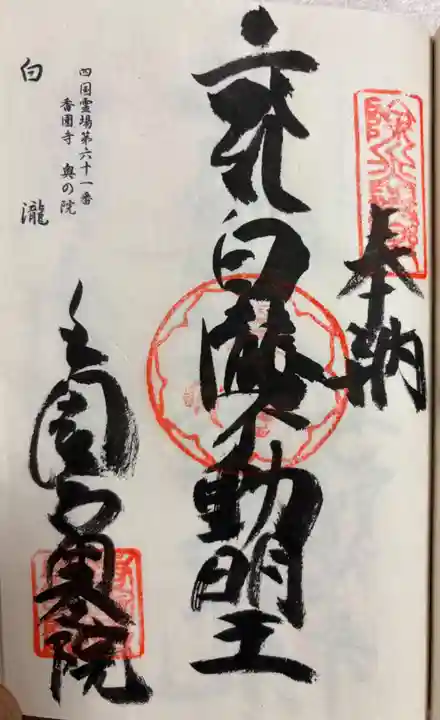 奉納
白瀧不動明王
香園寺奥之院
四国霊場第六十一番
香園寺 奥の院
白瀧